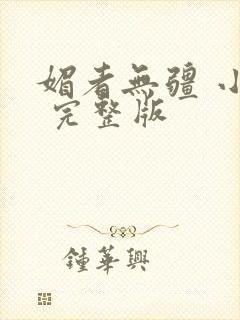 媚者無疆 小
完整版
鍾華興